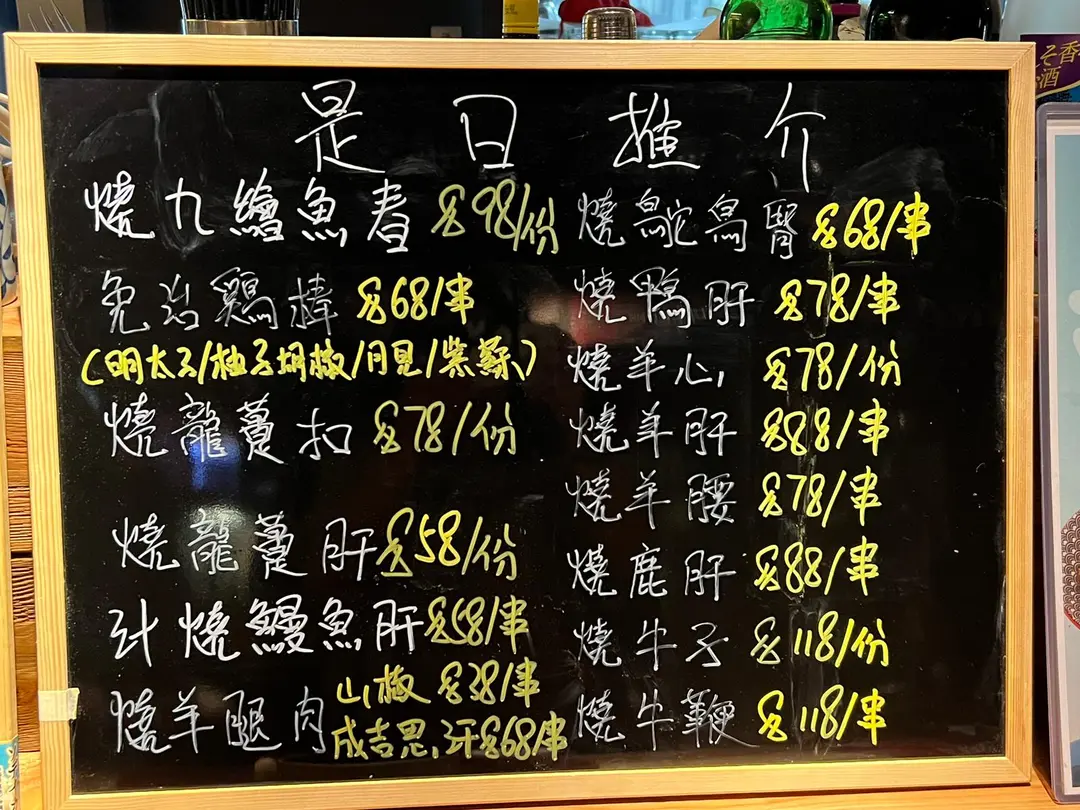 是日推介
燒九繪魚春 $98/份
免治鶏棒 $68/串
(明太子/柚子胡椒/月見/紫蘇)
燒龍躉扣 $78/份
燒龍躉肝 $58/份
汁燒鰻魚肝 $58/串
燒羊腿肉 山椒 $38/串
成吉思汗 $68/串
燒鴕鳥腎 $68/串
燒鴨肝 $78/串
燒羊心 $78/份
燒羊肝 $88/串
燒羊腰 $78/串
燒鹿肝 $88/串
燒牛子 $118/份
燒牛鞭 $118/串
そ香
酒